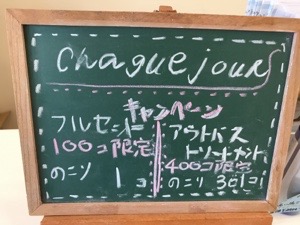 chaguejour
キャンペーン
フルセット
100コ限定
のこり 1コ
アウトバス
トリートメント
400コ限定
のこり 361コ!